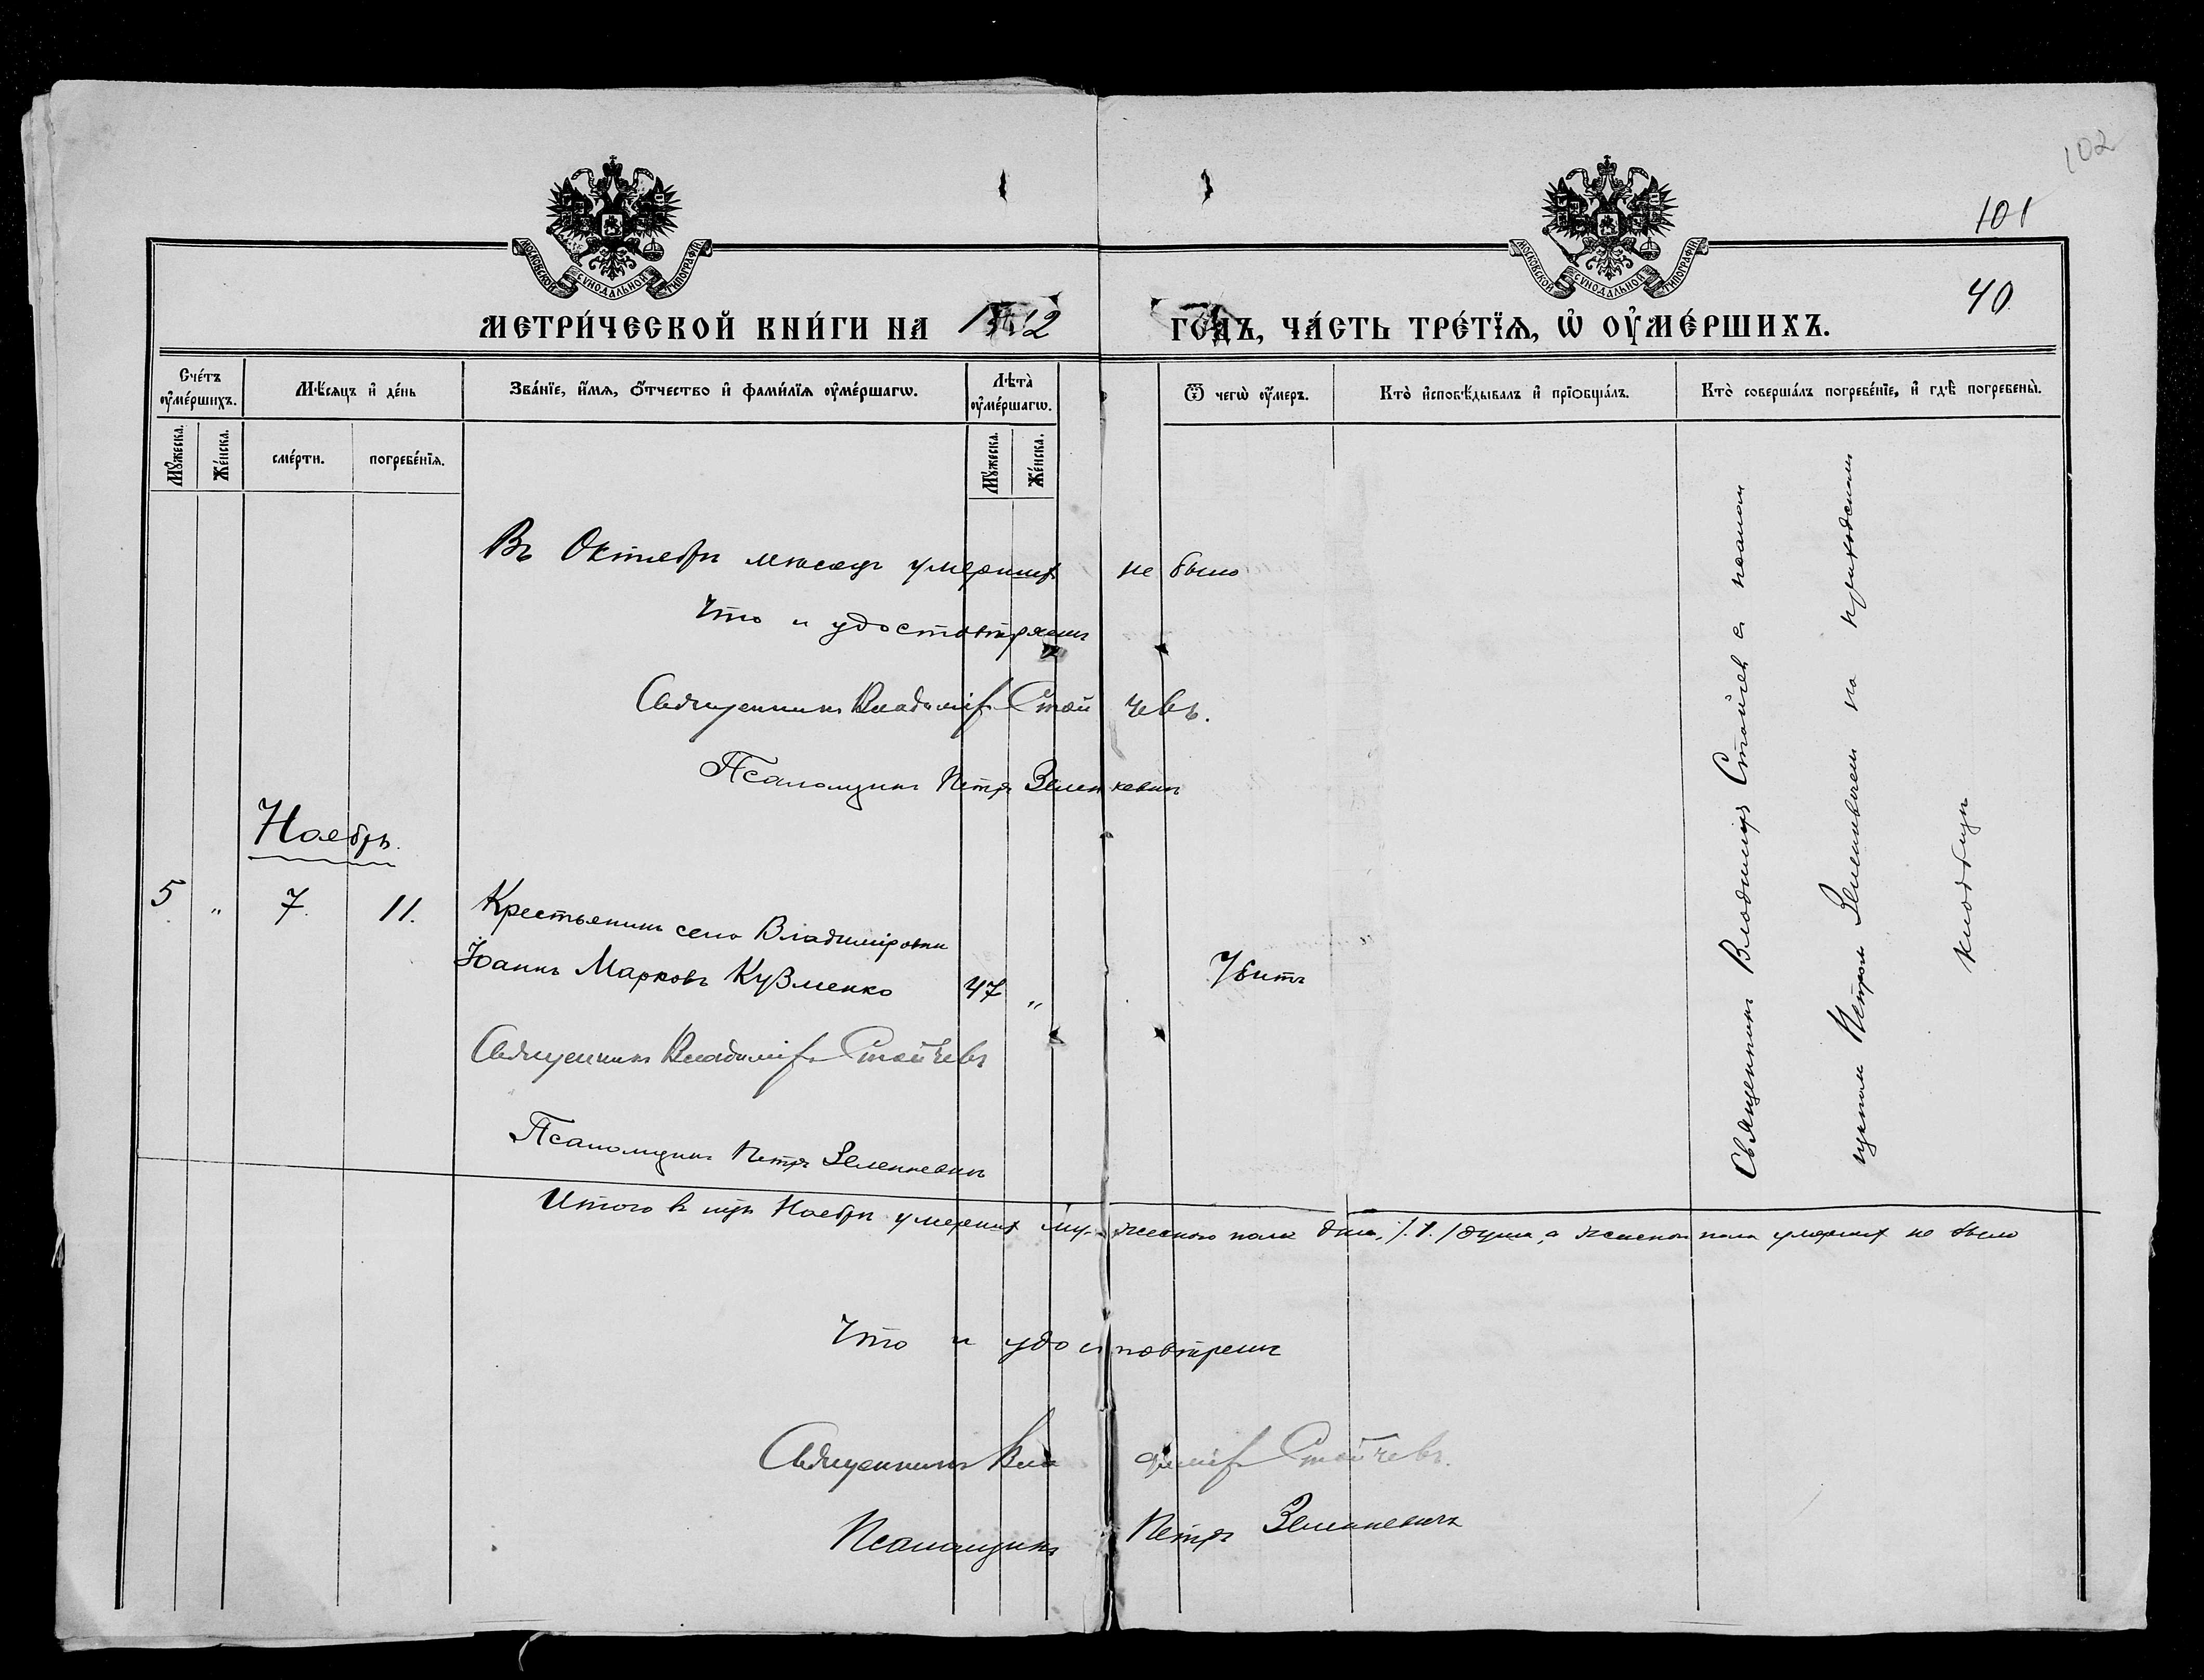 102
101
40
МОСКОВСКОЙ СУНОДАЛЬНОЙ ТИПОГРАФІИ
МОСКОВСКОЙ СУНОДАЛЬНОЙ ТИПОГРАФІИ
МЕТРИ́ЧЕСКОЙ КНИ́ГИ НА 1912 ГО́ДЪ, ЧА́СТЬ ТРЕ́ТЇѦ, Ѡ҆ ОУ҆МЕ́РШИХЪ.
Сче́тъ оу҆ме́ршихъ.
Мѣ́сѧцъ и҆ де́нь
Зва́нїе, и҆́мѧ, ѻ҆́тчество и҆ фами́лїѧ оу҆ме́ршагѡ.
Лѣ́та оу҆ме́ршагѡ.
Ѿ чегѡ̀ оу҆́меръ.
Кто̀ и҆сповѣ́дывалъ и҆ прїѻбща́лъ.
Кто̀ соверша́лъ погребе́нїе, и҆ гдѣ̀ погребены̀.
Мꙋ́жеска.
Же́нска.
сме́рти.
погребе́нїѧ.
Мꙋ́жеска.
Же́нска.
Въ Октябрѣ мѣсяцѣ умершихъ не было
Что и удостовѣряемъ
Священникъ Владиміръ Стойчевъ.
Псаломщикъ Петръ Зеленкевичъ
Ноябрь.
5. " 7. 11. Крестьянинъ села Владиміровки
Іоаннъ Марковъ Кузменко 47 " Убитъ
Священникъ Владиміръ Стойчевъ
Псаломщикъ Петръ Зеленкевичъ
Священникъ Владиміръ Стойчев с псалом
щиком Петром Зеленкевичем на приходском
кладбищѣ
Итого в мцѣ Ноябрѣ умерших мужескаго пола одна /1/ душа, а женскаго пола умерших не было
Что и удостовѣряемъ
Священникъ Владиміръ Стойчевъ.
Псаломщикъ Петръ Зеленкевичъ